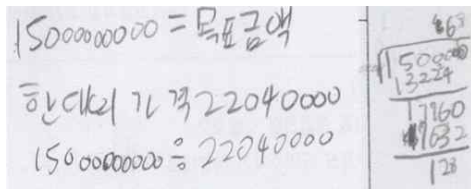 15000000000 = 목표금액
한대의 가격 22040000
15000000000 ÷ 22040000
68
1500000
13224
17760
17632
128